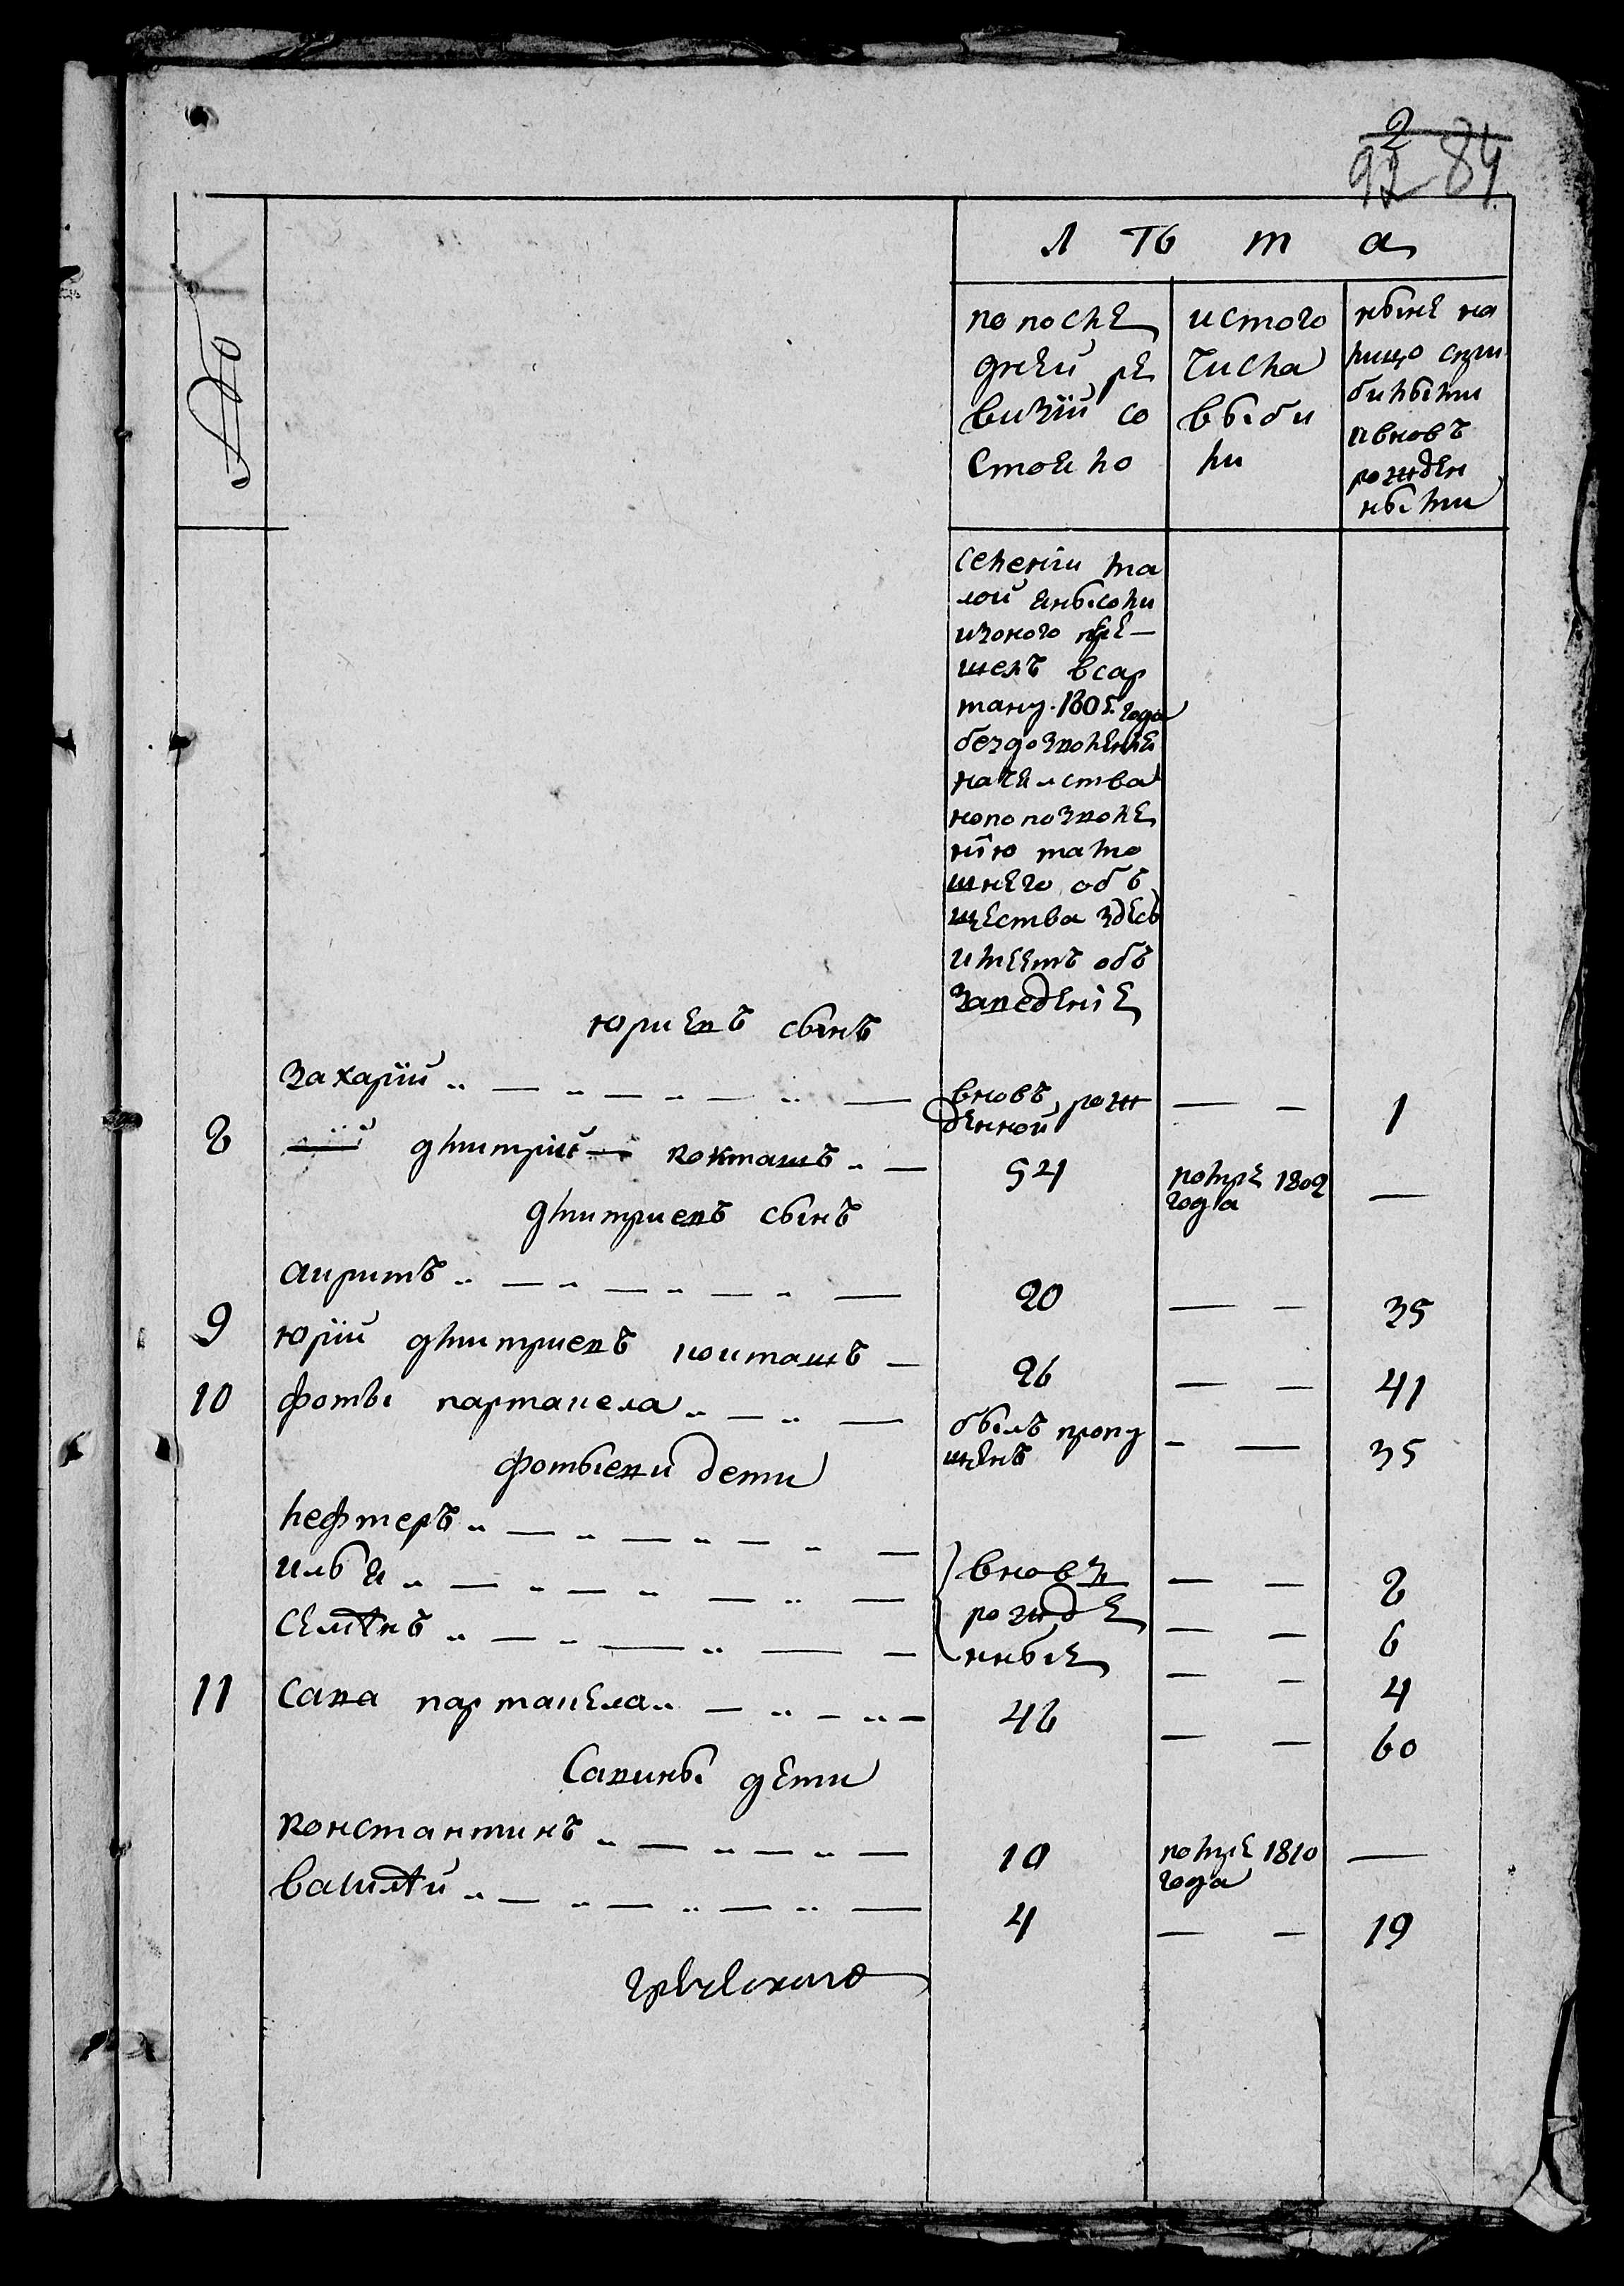 2
92 84
№
Л Ѣ т а
по после
дней ре
визіи со
стояло
истого
числа
выбы
ли
ныне на
лицо сприбылыми
ивновь
рожден
ными
селенія ма
лой
изоного пере
шелъ всар
тану 1805 года
бездозволеніе
начельства
нопопозволе
нію тамо
шнего объ
щества здесь
имеетъ объ
заведеніе
юриевъ сынъ
Захарій вновь рож
денной — — 1
8 дмитрій кокташъ 54 помре 1802
года —
дмитриевъ сынъ
аиритъ 20 — — 35
9 юрій дмитриевъ коиташъ 26 — — 41
10 фоты партацела былъ пропу
щенъ — — 35
фотыеви дети
лефтеръ вновь
рожде
нные — — 8
илья — — 6
семѣнъ — — 4
11 Сава партацела 46 — — 60
Савины дети
константинъ 10 помре 1810
года —
василѣй 4 — — 19
греческаго